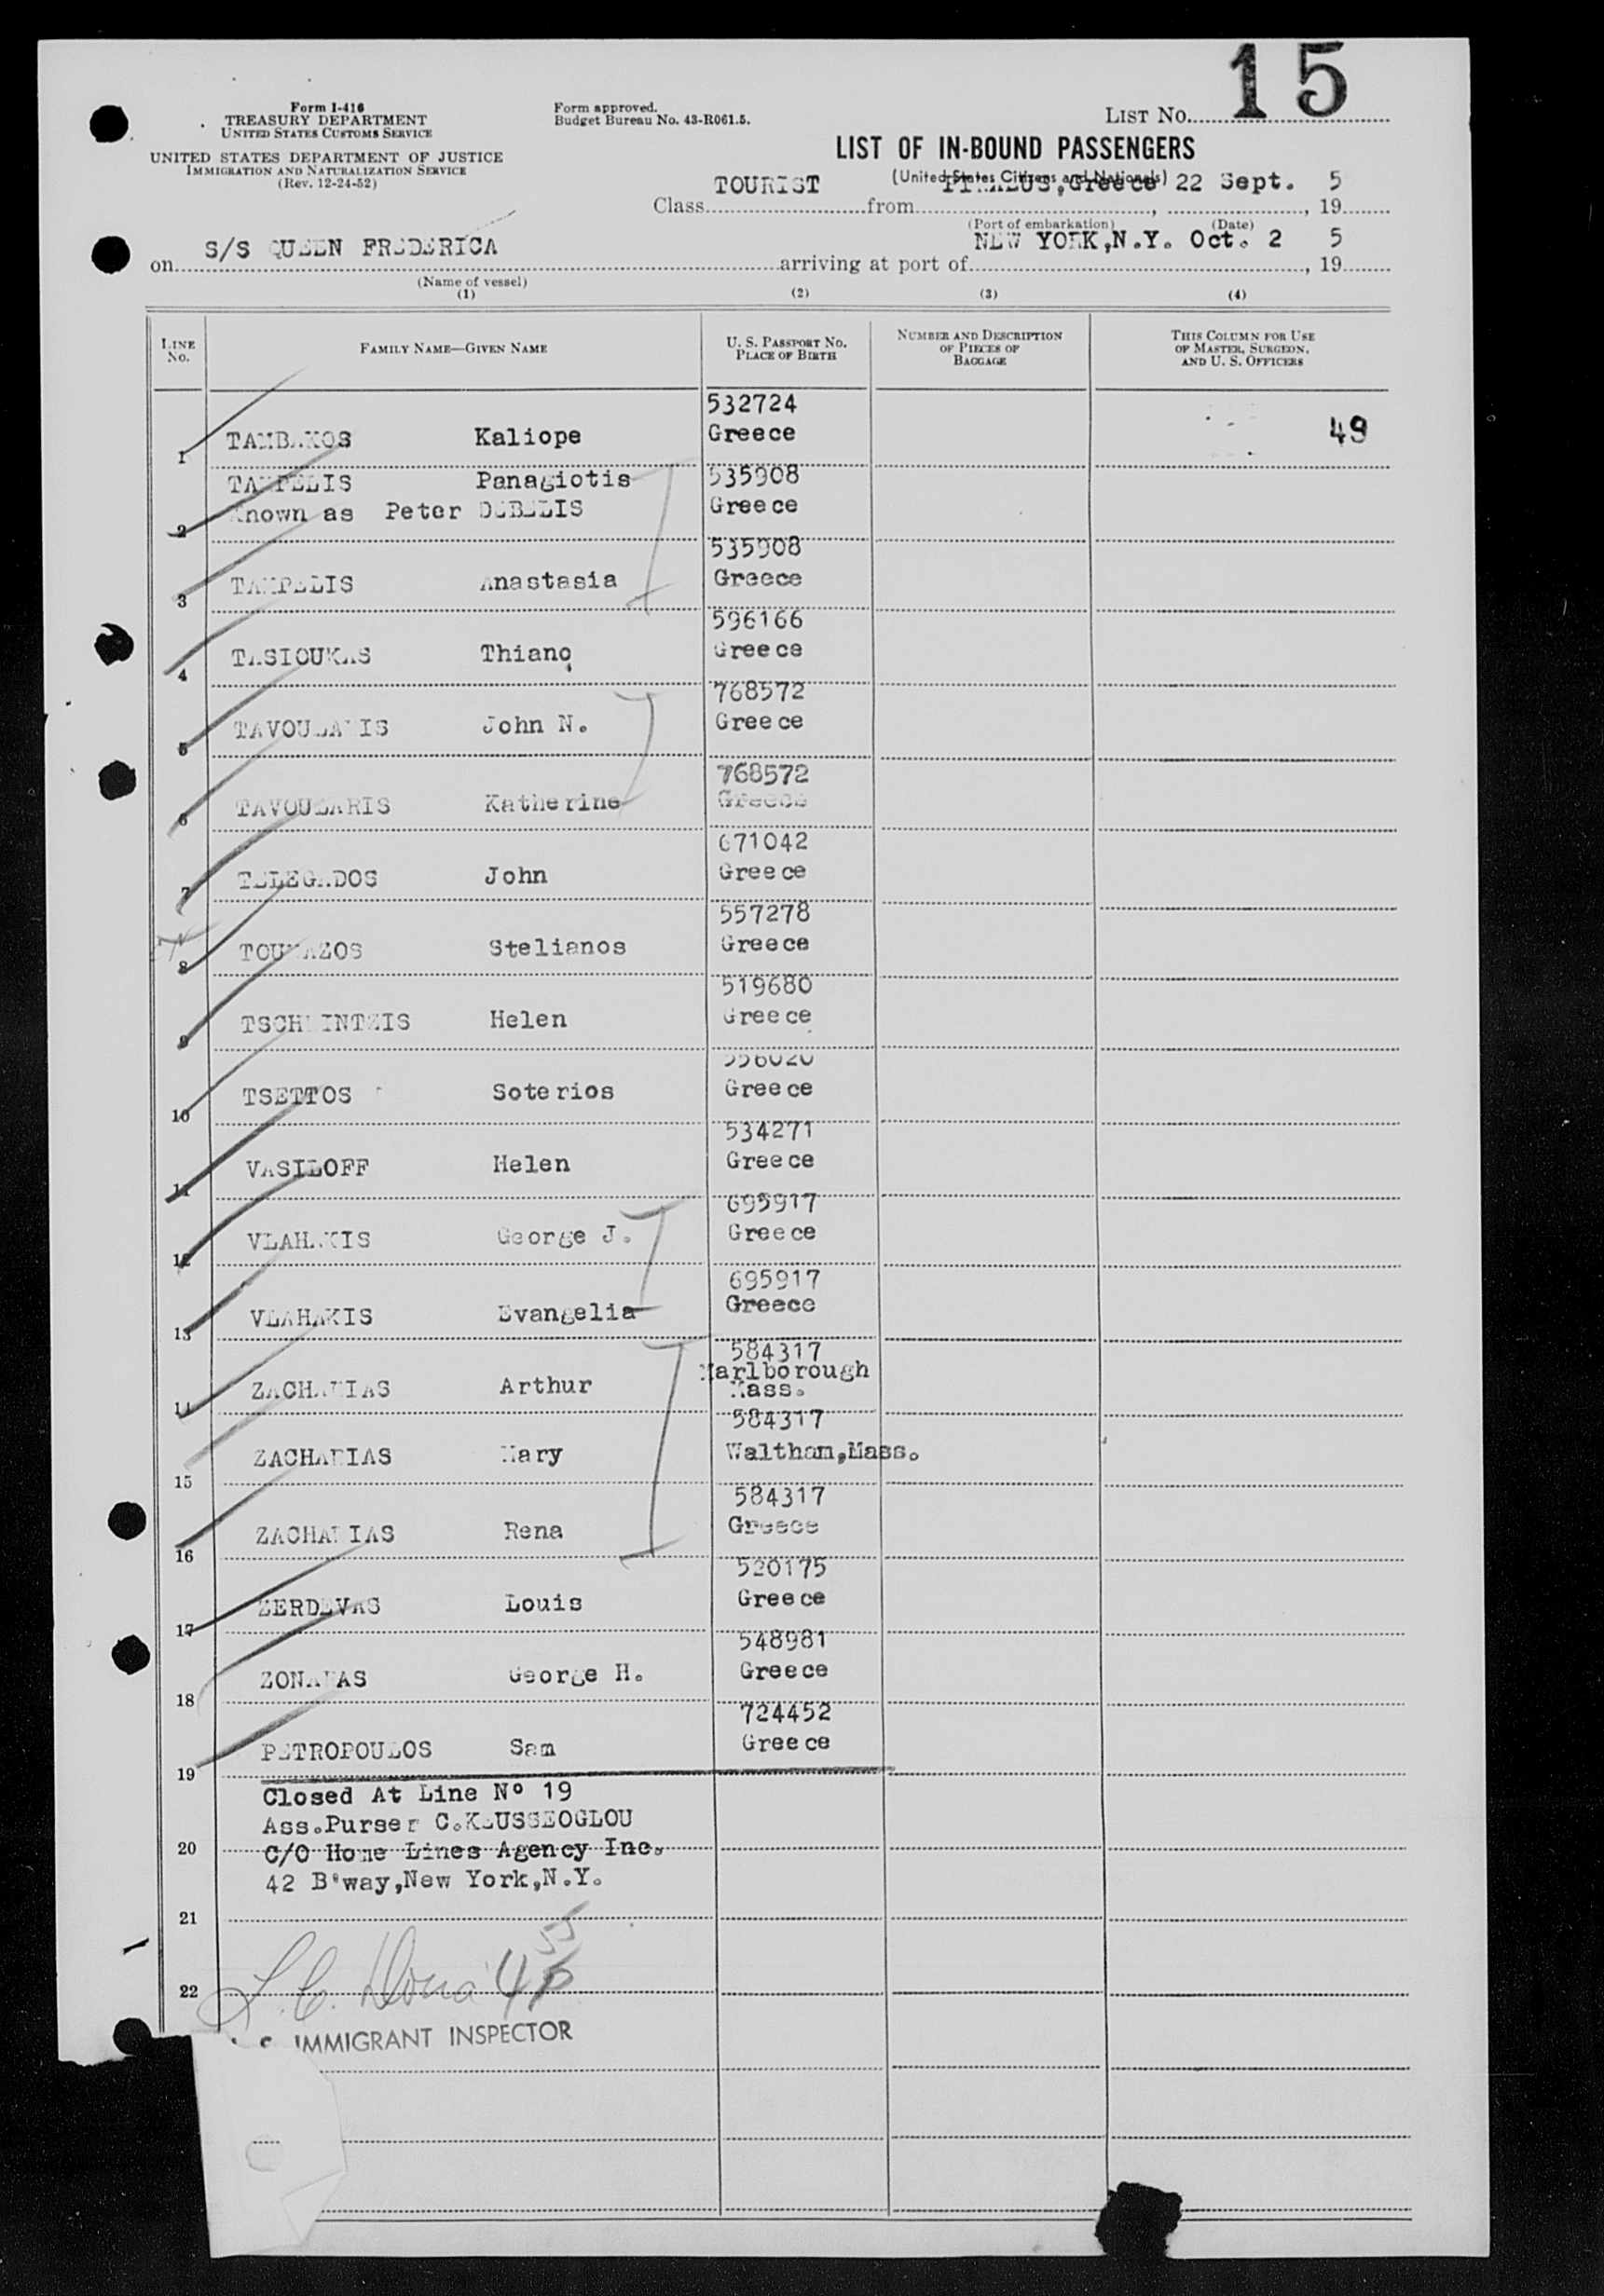 15
Form I-416
TREASURY DEPARTMENT
UNITED STATES CUSTOMS SERVICE
UNITED STATES DEPARTMENT OF JUSTICE
IMMIGRATION AND NATURALIZATION SERVICE
(Rev. 12-24-52)
Form approved.
Budget Bureau No. 43-R061.5.
LIST No.
LIST OF IN-BOUND PASSENGERS
(United States Citizens and Nationals)
Class TOURIST from PIRAEUS, Greece, 22 Sept., 19 5
(Port of embarkation) (Date)
on S/S QUEEN FREDERICA arriving at port of NEW YORK, N.Y. Oct. 2, 19 5
(Name of vessel)
(1) (2) (3) (4)
LINE NO.
FAMILY NAME—GIVEN NAME
U. S. PASSPORT NO.
PLACE OF BIRTH
NUMBER AND DESCRIPTION
OF PIECES OF
BAGGAGE
THIS COLUMN FOR USE
OF MASTER, SURGEON,
AND U. S. OFFICERS
532724
1 TAMBAKOS Kaliope Greece 49
TAMPELIS Panagiotis 535908
2 Known as Peter DEBELIS Greece
535908
3 TAMPELIS Anastasia Greece
596166
4 TASIOUKAS Thiano Greece
768572
5 TAVOULARIS John N. Greece
768572
6 TAVOULARIS Katherine Greece
671042
7 TELEGADOS John Greece
557278
8 TOUMAZOS Stelianos Greece
519680
9 Helen Greece
556020
10 TSETTOS Soterios Greece
534271
11 VASILOFF Helen Greece
695917
12 VLAHAKIS George J. Greece
695917
13 VLAHAKIS Evangelia Greece
584317
14 ZACHARIAS Arthur Marlborough
Mass.
584317
15 ZACHARIAS Mary Waltham, Mass.
584317
16 ZACHARIAS Rena Greece
520175
17 ZERDEVAS Louis Greece
548981
18 ZONARAS George H. Greece
724452
19 PETROPOULOS Sam Greece
Closed At Line Nº 19
Ass.Purser C.KEUSSEOGLOU
20 C/O Home Lines Agency Inc.
42 B'way, New York, N.Y.
21
22
IMMIGRANT INSPECTOR